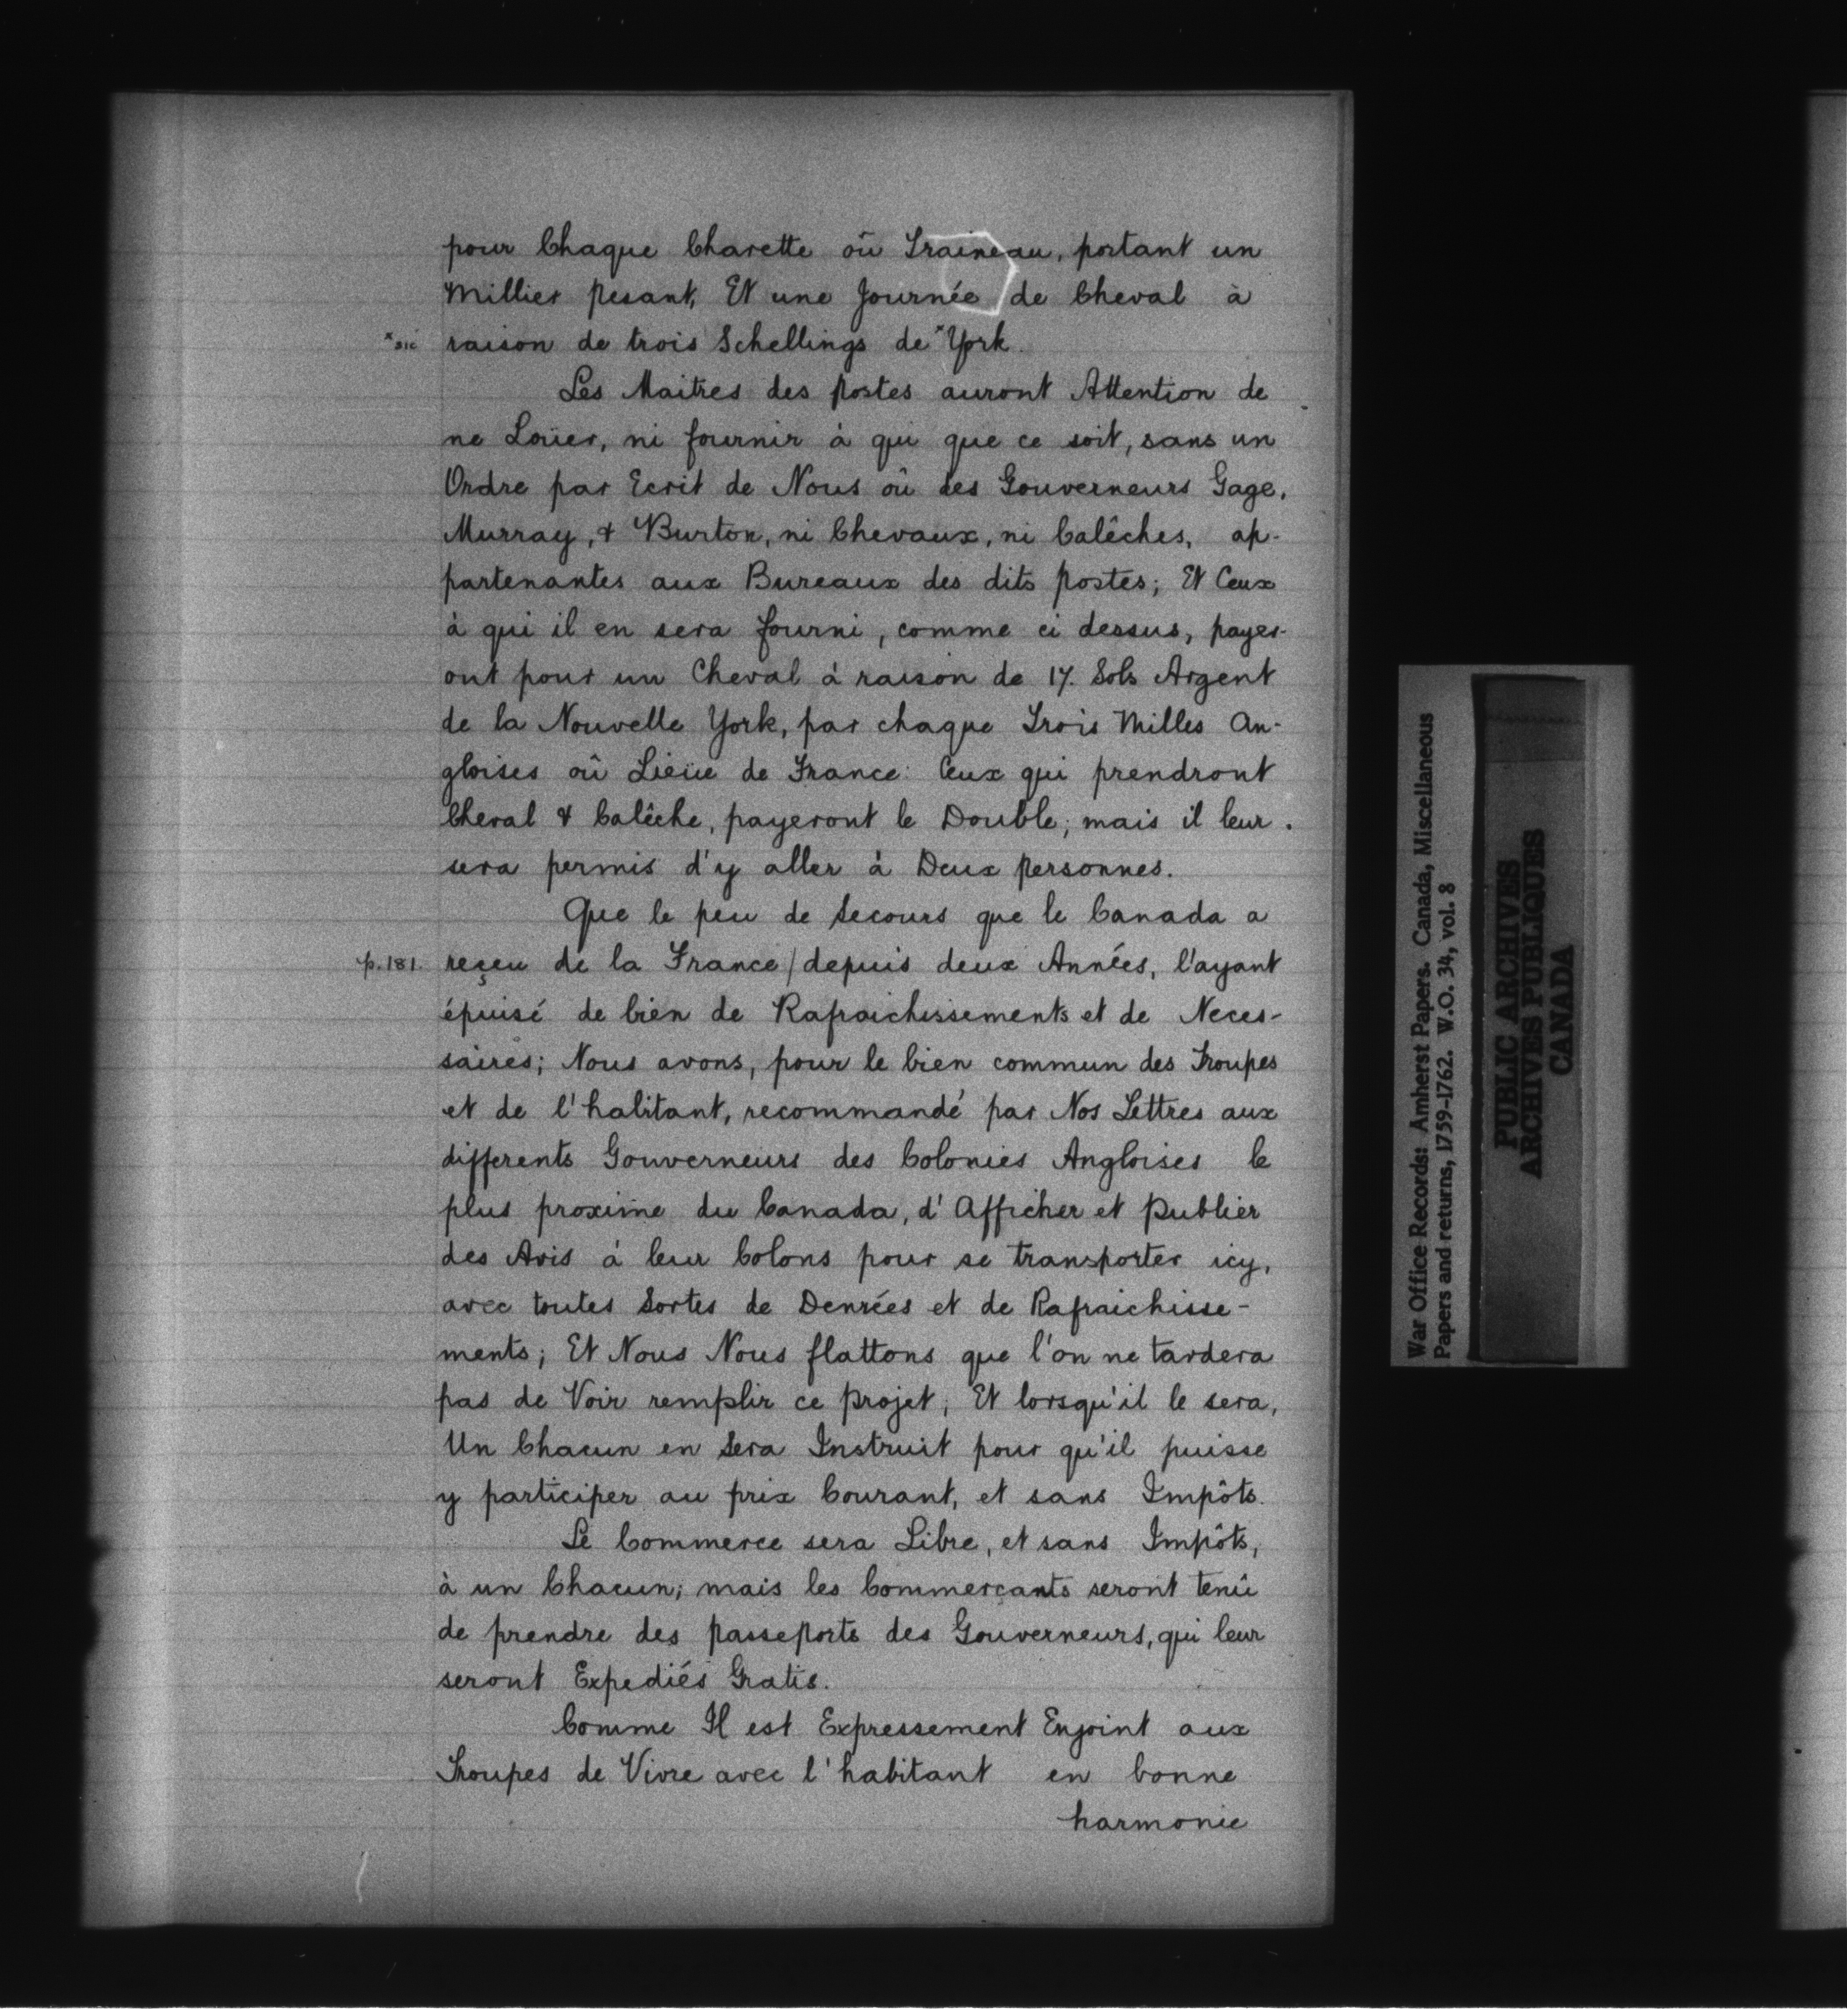 pour Chaque Charette où Traineau, portant un
Millier pesant, Et une Journée de Cheval à
*sic raison de trois Schellings de *York.
Les Maitres des postes auront Attention de
ne Loüer, ni fournir à qui que ce soit, sans un
Ordre par Ecrit de Nous où des Gouverneurs Gage,
Murray, & Burton, ni Chevaux, ni Calêches, ap-
partenantes aux Bureaux des dits postes; Et Ceux
à qui il en sera fourni, comme ci dessus, payer-
ont pour un Cheval à raison de 17. Sols Argent
de la Nouvelle York, par chaque Trois Milles An-
gloises où Lieüe de France: Ceux qui prendront
Cheval & Calêche, payeront le Double; mais il leur
sera permis d'y aller à Deux personnes.
Que le peu de Secours que le Canada a
p.181. reçeu de la France/depuis deux Années, l'ayant
épuisé de bien de Rafraichissements et de Neces-
saires; Nous avons, pour le bien commun des Troupes
et de l'habitant, recommandé par Nos Lettres aux
differents Gouverneurs des Colonies Angloises le
plus proxime du Canada, d'Afficher et publier
des Avis à leur Colons pour se transporter icy,
avec toutes Sortes de Denrées et de Rafraichisse-
ments; Et Nous Nous flattons que l'on ne tardera
pas de Voir remplir ce projet; Et lorsqu'il le sera,
Un Chacun en Sera Instruit pour qu'il puisse
y participer au prix Courant, et sans Impôts.
Le Commerce sera Libre, et sans Impôts,
à un Chacun; mais les Commerçants seront tenû
de prendre des passeports des Gouverneurs, qui leur
seront Expediés Gratis.
Comme Il est Expressement Enjoint aux
Troupes de Vivre avec l'habitant en bonne
harmonie
War Office Records: Amherst Papers. Canada, Miscellaneous
Papers and returns, 1759-1762. W.O. 34, vol. 8
PUBLIC ARCHIVES
ARCHIVES PUBLIQUES
CANADA